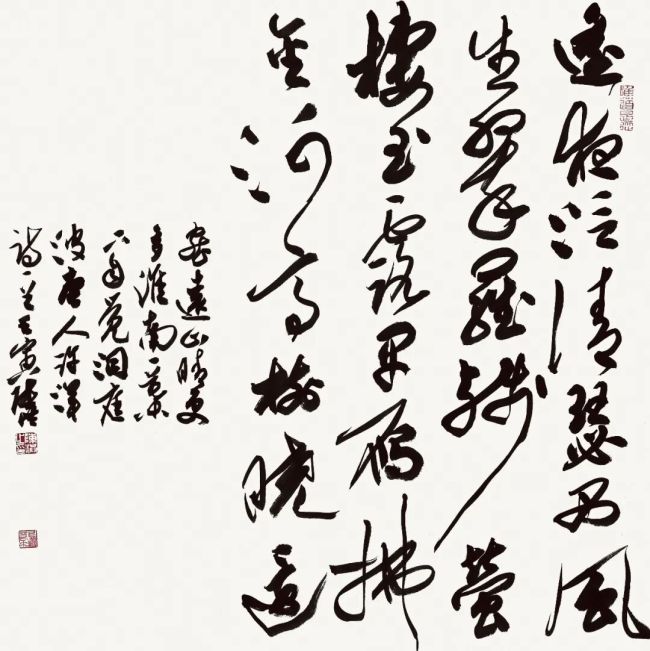 遥夜泛清瑟西風
生翠羅殘螢
棲玉露早雁拂
金河高樹曉還
密遠山晴更
多淮南一葉
下自覺洞庭
波唐人許渾
詩一首壬寅